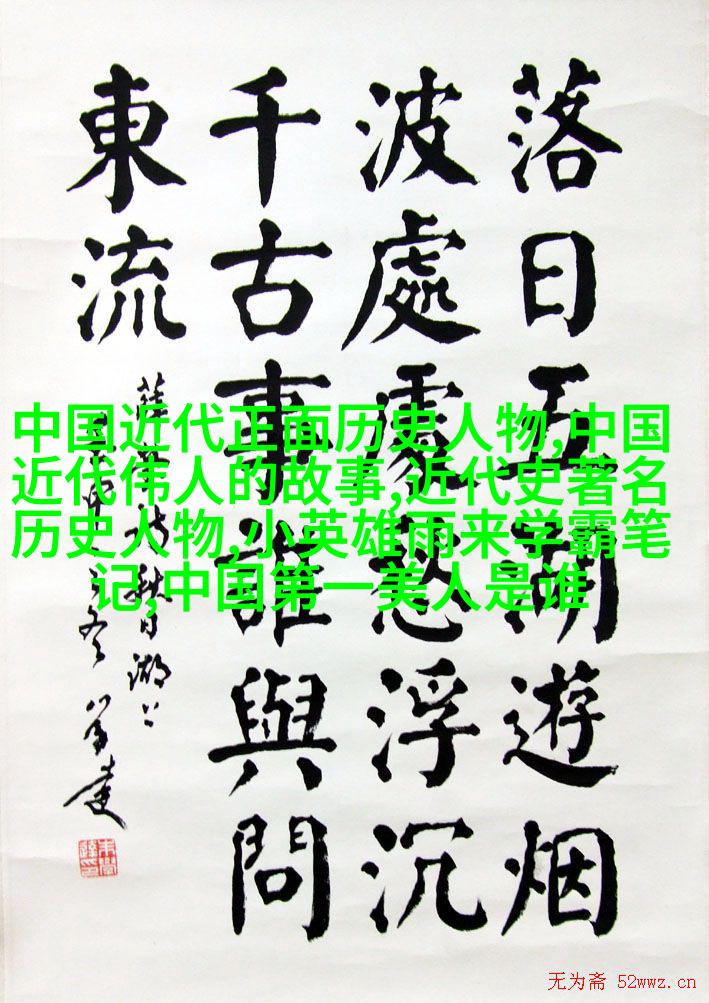 落日五湖遊烟
波處處愁浮沉
千古事誰與問
東流
秋日湖上
中国近代正面历史人物,中国
近代伟人的故事,近代史著名
历史人物,小英雄雨来学霸笔
记,中国第一美人是谁
无为斋 52wwz.cn